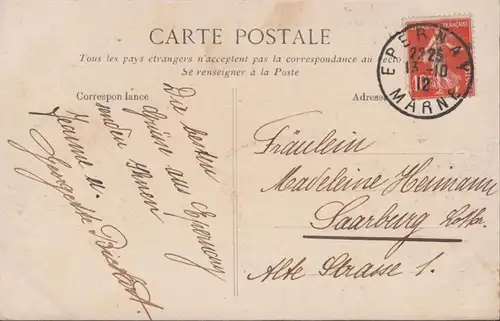 CARTE POSTALE
Tous les pays étrangers n'acceptent pas la correspondance au recto
Se renseigner à la Poste
Correspondance
Adresse
EPERNAY
22 25
13-10
12
MARNE
Die besten
Grüsse aus Epernay
senden Ihnen
Jeanne u.
Fräulein
Madeleine Heimann
Saarburg Lothr.
Alte Strasse 1.